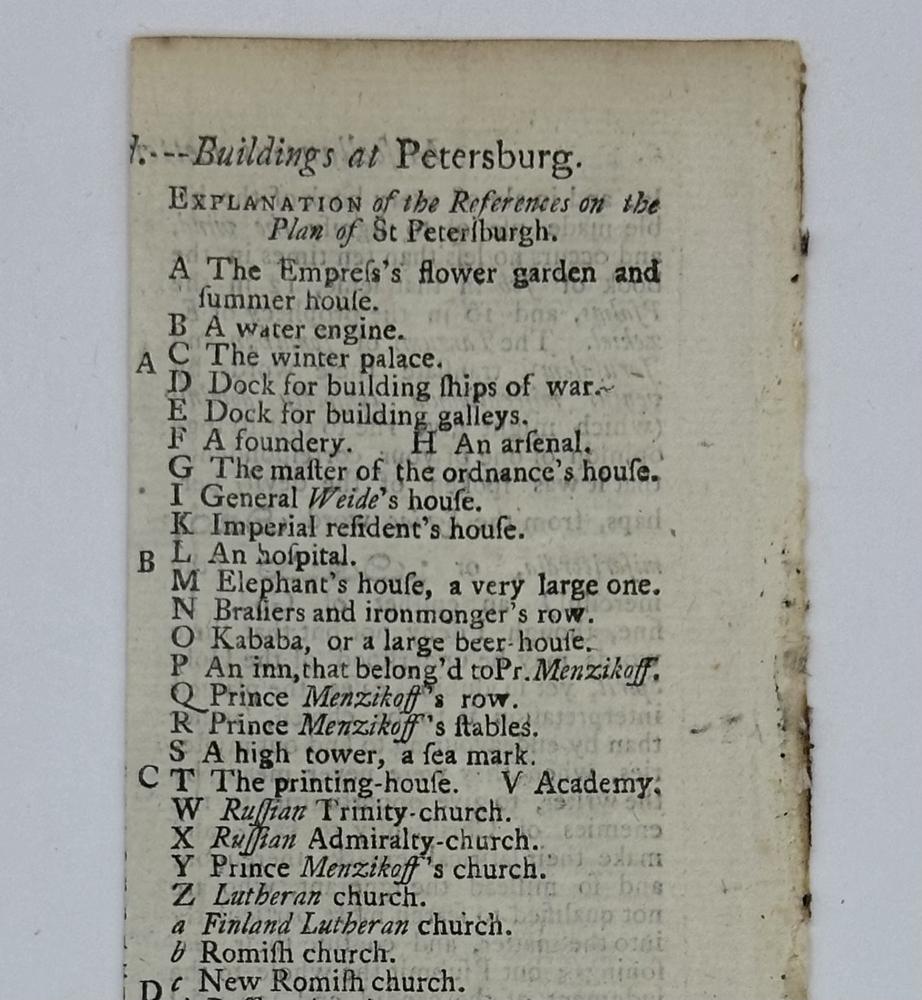 .---Buildings at Petersburg.
EXPLANATION of the References on the
Plan of St Peterſburgh.
A The Empreſs's flower garden and
ſummer houſe.
B A water engine.
A C The winter palace.
D Dock for building ſhips of war.
E Dock for building galleys.
F A foundery. H An arſenal.
G The maſter of the ordnance's houſe.
I General Weide's houſe.
K Imperial reſident's houſe.
B L An hoſpital.
M Elephant's houſe, a very large one.
N Braſiers and ironmonger's row.
O Kababa, or a large beer-houſe.
P An inn, that belong'd to Pr. Menzikoff.
Q Prince Menzikoff's row.
R Prince Menzikoff's ſtables.
S A high tower, a ſea mark.
C T The printing-houſe. V Academy.
W Ruſſian Trinity-church.
X Ruſſian Admiralty-church.
Y Prince Menzikoff's church.
Z Lutheran church.
a Finland Lutheran church.
b Romiſh church.
D c New Romiſh church.